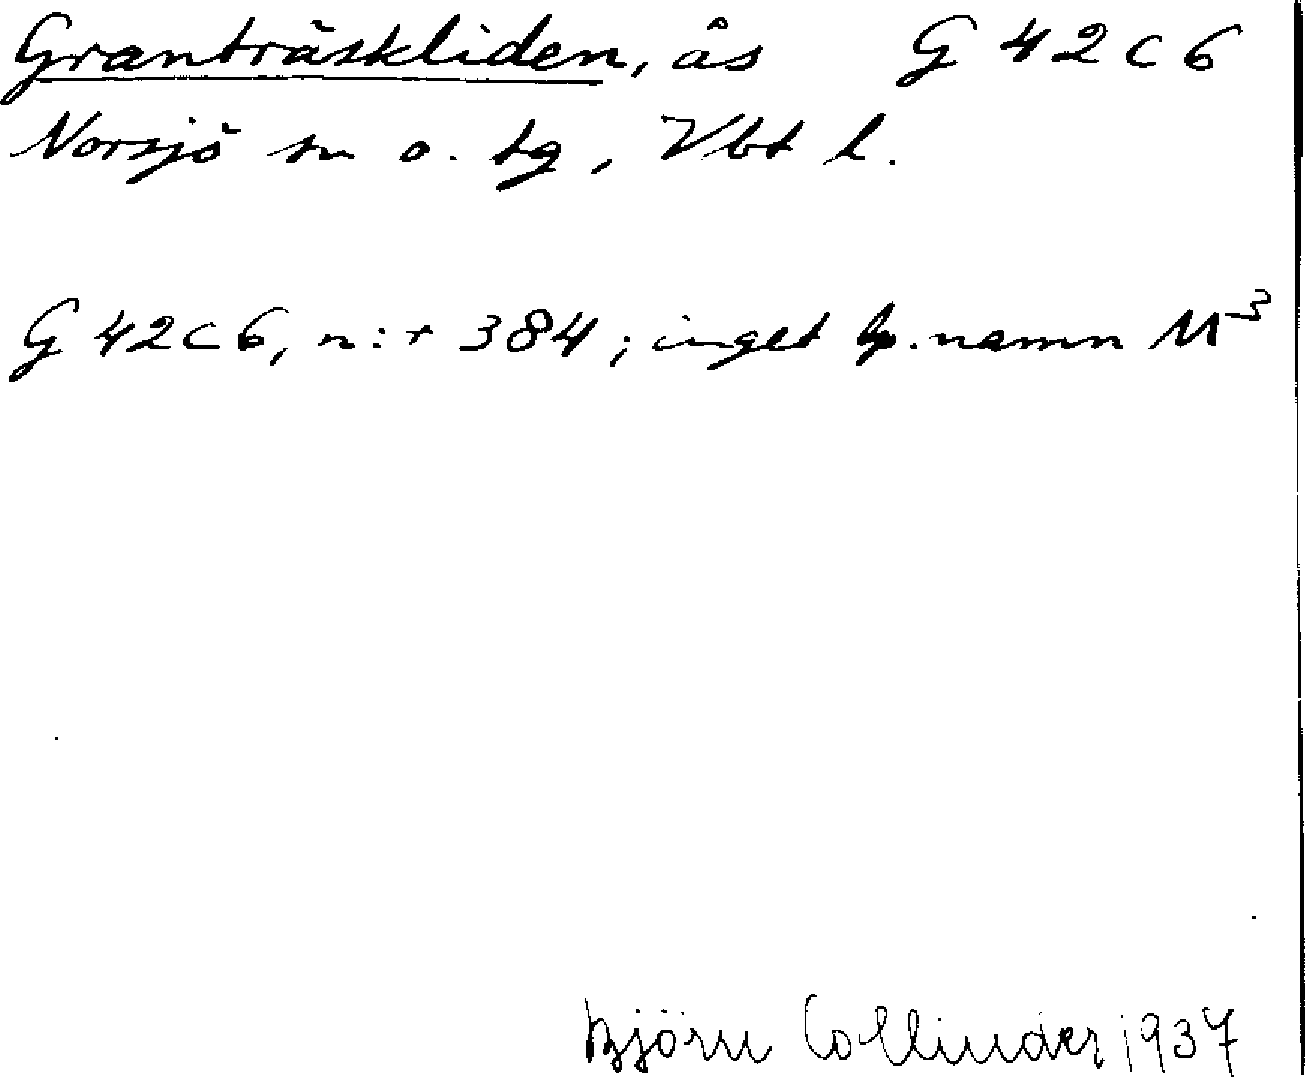 Granträskliden, ås G 42 c 6
Norsjö sn o. tg, Vbt l.
G 42 c 6, n:r 384; inget lp. namn M³
Björn Collinder 1937